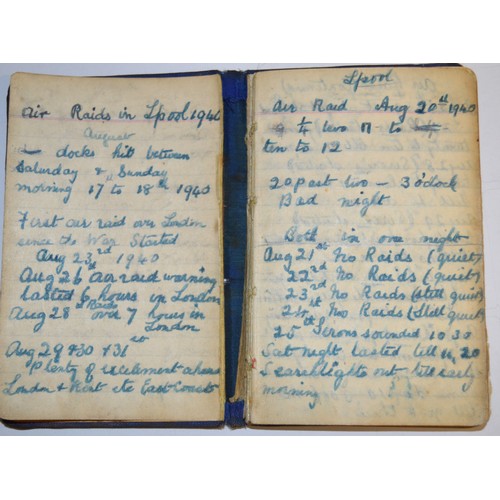 Air Raids in Lpool 1940
August
docks hit between
Saturday & Sunday
morning 17 to 18th 1940
First air raid over London
since the War Started
Aug 23rd 1940
Aug 26th air raid warning
lasted 6 hours in London
Aug 28th Raids over 7 hours in
London
Aug 29 & 30 & 31st
Plenty of excitement
London & Kent etc East Coast
Lpool
Air Raid Aug 20th 1940
9 1/4 two to
ten to 12
20 past two - 3 o'clock
Bad night
Both in one night
Aug 21st No Raids (quiet)
22nd No Raids (quiet)
23rd No Raids (still quiet)
24th No Raids (still quiet)
25th Sirens sounded 10 30
Sat night lasted till 11, 20
Searchlights out till early
morning